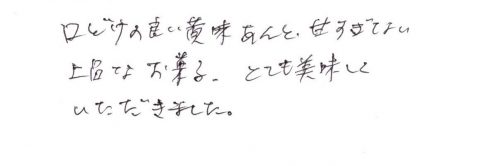 口どけの良い黄味あんと、甘すぎない
上品なお菓子、とても美味しく
いただきました。